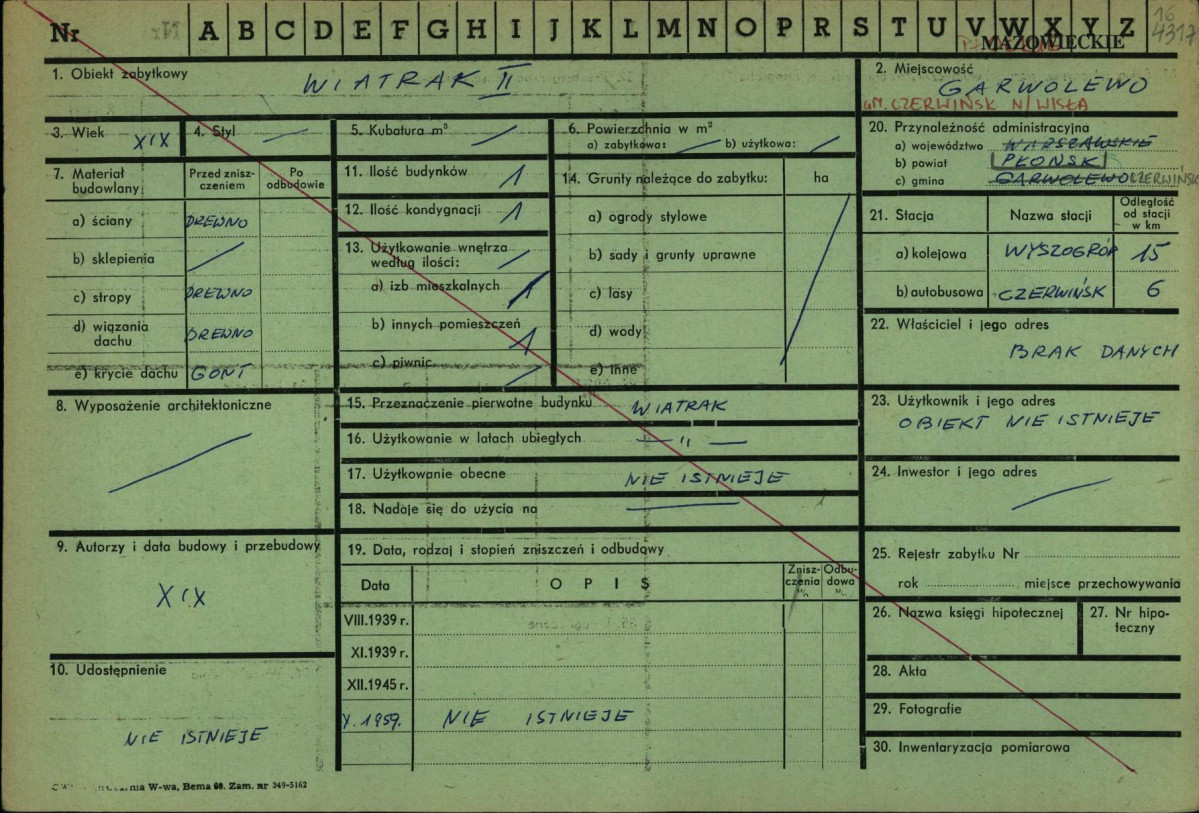 Nr A B C D E F G H I J K L M N O P R S T U V W X Y Z
16
4317
MAZOWIECKIE
1. Obiekt zabytkowy WIATRAK II
2. Miejscowość
GARWOLEWO
GM. CZERWIŃSK N/WISŁĄ
3. Wiek XIX
4. Styl
5. Kubatura m³
6. Powierzchnia w m²
a) zabytkowa: b) użytkowa:
20. Przynależność administracyjna
a) województwo WARSZAWSKIE
b) powiat PŁOŃSK
c) gmina GARWOLEWO CZERWIŃSK
7. Materiał budowlany
Przed zniszczeniem
Po odbudowie
a) ściany DREWNO
b) sklepienia
c) stropy DREWNO
d) wiązania dachu DREWNO
e) krycie dachu GONT
11. Ilość budynków 1
12. Ilość kondygnacji 1
13. Użytkowanie wnętrza
według ilości:
a) izb mieszkalnych 1
b) innych pomieszczeń 1
c) piwnic
14. Grunty należące do zabytku: ha
a) ogrody stylowe
b) sady i grunty uprawne
c) lasy
d) wody
e) inne
21. Stacja Nazwa stacji Odległość od stacji w km
a) kolejowa WYSZOGRÓD 15
b) autobusowa CZERWIŃSK 6
22. Właściciel i jego adres
BRAK DANYCH
8. Wyposażenie architektoniczne
15. Przeznaczenie pierwotne budynku WIATRAK
16. Użytkowanie w latach ubiegłych — " —
17. Użytkowanie obecne NIE ISTNIEJE
18. Nadaje się do użycia na
23. Użytkownik i jego adres
OBIEKT NIE ISTNIEJE
24. Inwestor i jego adres
9. Autorzy i data budowy i przebudowy
XIX
19. Data, rodzaj i stopień zniszczeń i odbudowy
Data OPIS Zniszczenia % Odbudowa %
VIII.1939 r.
XI.1939 r.
XII.1945 r.
X. 1959. NIE ISTNIEJE
25. Rejestr zabytku Nr
rok miejsce przechowywania
26. Nazwa księgi hipotecznej
27. Nr hipoteczny
28. Akta
29. Fotografie
30. Inwentaryzacja pomiarowa
10. Udostępnienie
NIE ISTNIEJE
W-wa, Bema 60. Zam. nr 349-5162